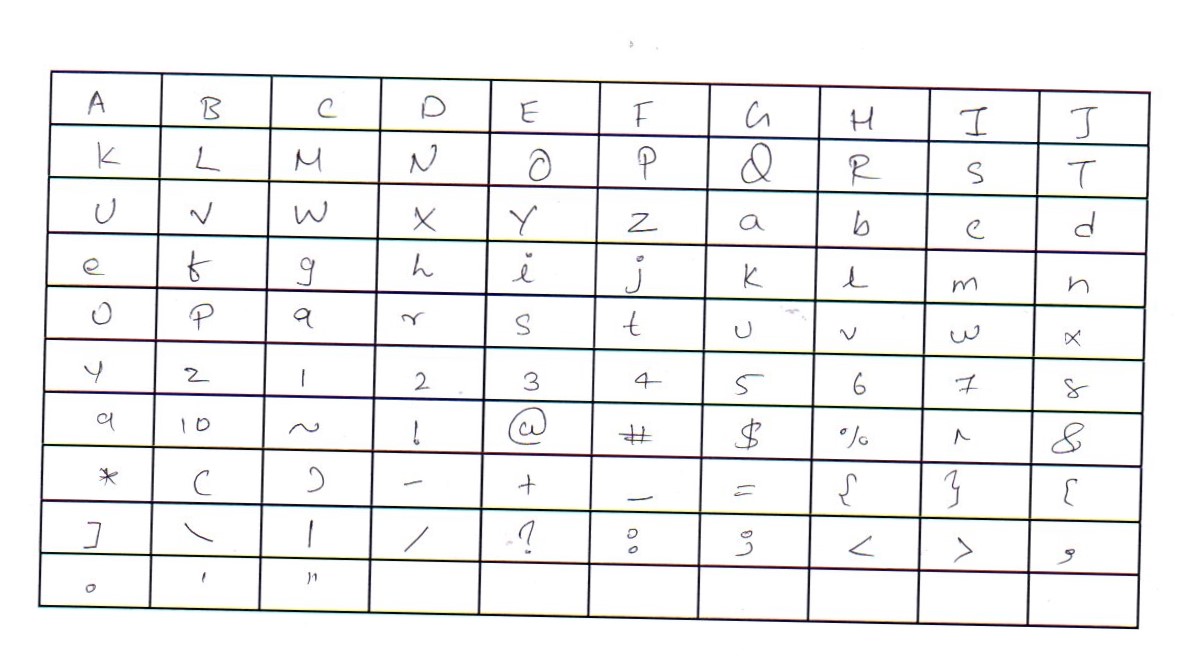 A B C D E F G H I J
K L M N O P Q R S T
U V W X Y Z a b c d
e f g h i j k l m n
o p q r s t u v w x
y z 1 2 3 4 5 6 7 8
9 10 ~ ! @ # $ % ^ &
* ( ) - + _ = { } [
] \ | / ? : ; < > ,
. ' "